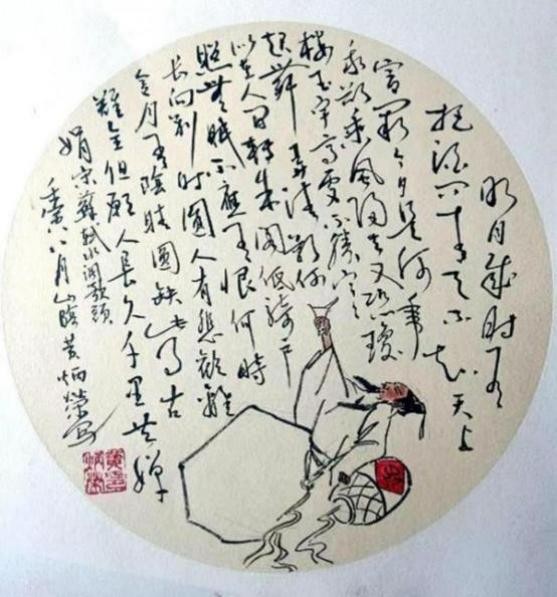 明月幾时有
把酒问青天不知天上
宫阙今夕是何年
我欲乘风归去又恐瓊
楼玉宇高处不胜寒
起舞弄清影何
似在人间转朱阁低绮户
照无眠不应有恨何时
长向别时圆人有悲歡離
合月有陰晴圆缺此事古
难全但願人長久千里共嬋
娟宋蘇軾水调歌頭
壬寅八月山陰黄炳榮写